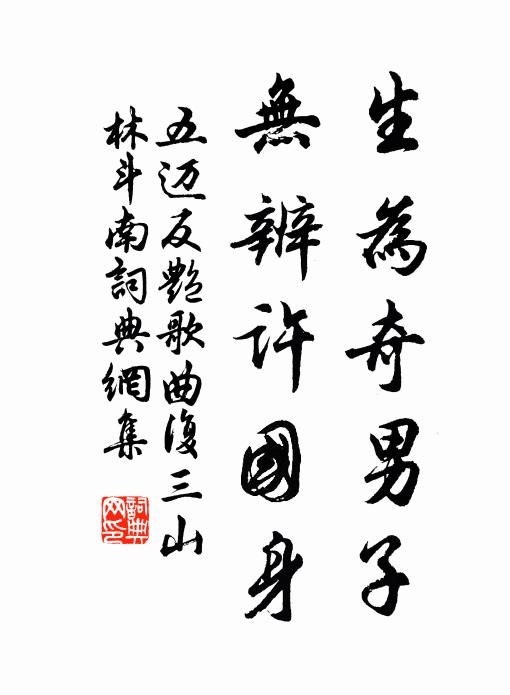 生為奇男子
無辨許國身
五迈反艷歌曲復三山
林斗南詞典網集
詞典